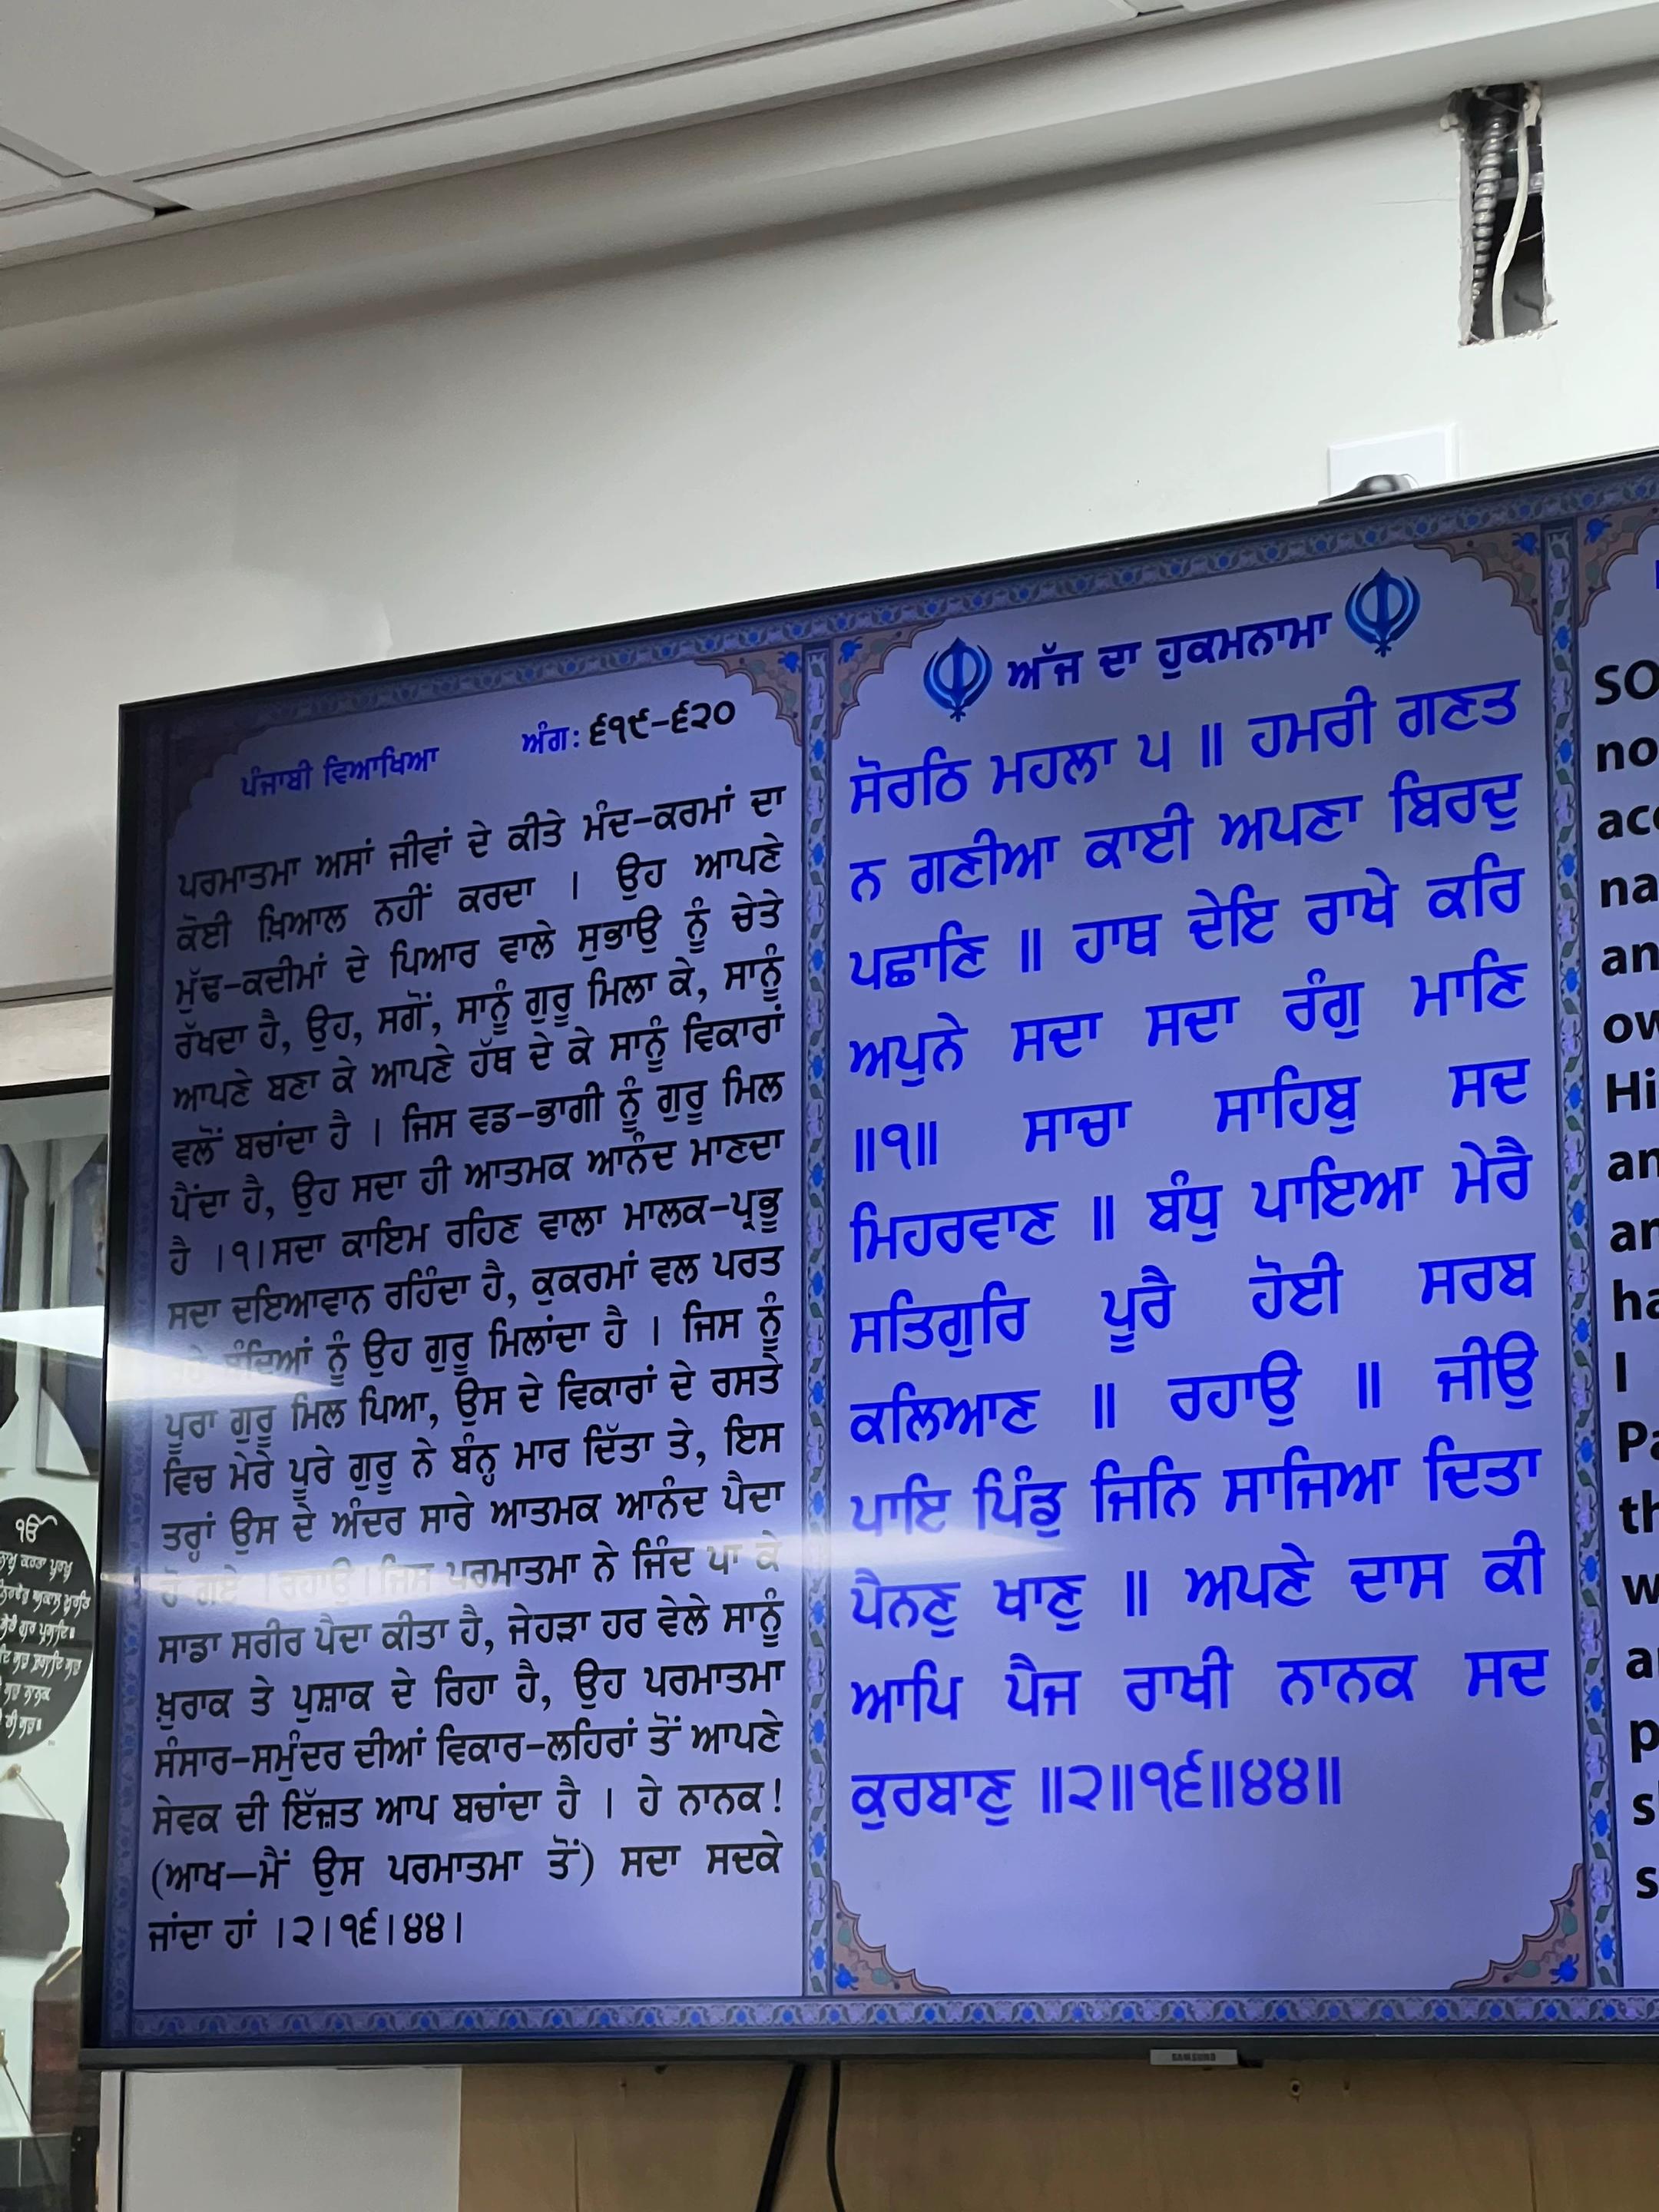 ਪੰਜਾਬੀ ਵਿਆਖਿਆ ਅੰਗ: ੬੧੯-੬੨੦
ਪਰਮਾਤਮਾ ਅਸਾਂ ਜੀਵਾਂ ਦੇ ਕੀਤੇ ਮੰਦ-ਕਰਮਾਂ ਦਾ
ਕੋਈ ਖ਼ਿਆਲ ਨਹੀਂ ਕਰਦਾ । ਉਹ ਆਪਣੇ
ਮੁੱਢ-ਕਦੀਮਾਂ ਦੇ ਪਿਆਰ ਵਾਲੇ ਸੁਭਾਉ ਨੂੰ ਚੇਤੇ
ਰੱਖਦਾ ਹੈ, ਉਹ, ਸਗੋਂ, ਸਾਨੂੰ ਗੁਰੂ ਮਿਲਾ ਕੇ, ਸਾਨੂੰ
ਆਪਣੇ ਬਣਾ ਕੇ ਆਪਣੇ ਹੱਥ ਦੇ ਕੇ ਸਾਨੂੰ ਵਿਕਾਰਾਂ
ਵਲੋਂ ਬਚਾਂਦਾ ਹੈ । ਜਿਸ ਵਡ-ਭਾਗੀ ਨੂੰ ਗੁਰੂ ਮਿਲ
ਪੈਂਦਾ ਹੈ, ਉਹ ਸਦਾ ਹੀ ਆਤਮਕ ਆਨੰਦ ਮਾਣਦਾ
ਹੈ ।੧।ਸਦਾ ਕਾਇਮ ਰਹਿਣ ਵਾਲਾ ਮਾਲਕ-ਪ੍ਰਭੂ
ਸਦਾ ਦਇਆਵਾਨ ਰਹਿੰਦਾ ਹੈ, ਕੁਕਰਮਾਂ ਵਲ ਪਰਤ
ਨੂੰ ਉਹ ਗੁਰੂ ਮਿਲਾਂਦਾ ਹੈ । ਜਿਸ ਨੂੰ
ਪੂਰਾ ਗੁਰੂ ਮਿਲ ਪਿਆ, ਉਸ ਦੇ ਵਿਕਾਰਾਂ ਦੇ ਰਸਤੇ
ਵਿਚ ਮੇਰੇ ਪੂਰੇ ਗੁਰੂ ਨੇ ਬੰਨ੍ਹ ਮਾਰ ਦਿੱਤਾ ਤੇ, ਇਸ
ਤਰ੍ਹਾਂ ਉਸ ਦੇ ਅੰਦਰ ਸਾਰੇ ਆਤਮਕ ਆਨੰਦ ਪੈਦਾ
ਹੋ ਗਏ ।ਰਹਾਉ।ਜਿਸ ਪਰਮਾਤਮਾ ਨੇ ਜਿੰਦ ਪਾ ਕੇ
ਸਾਡਾ ਸਰੀਰ ਪੈਦਾ ਕੀਤਾ ਹੈ, ਜੇਹੜਾ ਹਰ ਵੇਲੇ ਸਾਨੂੰ
ਖ਼ੁਰਾਕ ਤੇ ਪੁਸ਼ਾਕ ਦੇ ਰਿਹਾ ਹੈ, ਉਹ ਪਰਮਾਤਮਾ
ਸੰਸਾਰ-ਸਮੁੰਦਰ ਦੀਆਂ ਵਿਕਾਰ-ਲਹਿਰਾਂ ਤੋਂ ਆਪਣੇ
ਸੇਵਕ ਦੀ ਇੱਜ਼ਤ ਆਪ ਬਚਾਂਦਾ ਹੈ । ਹੇ ਨਾਨਕ!
(ਆਖ—ਮੈਂ ਉਸ ਪਰਮਾਤਮਾ ਤੋਂ) ਸਦਾ ਸਦਕੇ
ਜਾਂਦਾ ਹਾਂ ।੨।੧੬।੪੪।
ਅੱਜ ਦਾ ਹੁਕਮਨਾਮਾ
ਸੋਰਠਿ ਮਹਲਾ ੫ ॥ ਹਮਰੀ ਗਣਤ
ਨ ਗਣੀਆ ਕਾਈ ਅਪਣਾ ਬਿਰਦੁ
ਪਛਾਣਿ ॥ ਹਾਥ ਦੇਇ ਰਾਖੇ ਕਰਿ
ਅਪੁਨੇ ਸਦਾ ਸਦਾ ਰੰਗੁ ਮਾਣਿ
॥੧॥ ਸਾਚਾ ਸਾਹਿਬੁ ਸਦ
ਮਿਹਰਵਾਣ ॥ ਬੰਧੁ ਪਾਇਆ ਮੇਰੈ
ਸਤਿਗੁਰਿ ਪੂਰੈ ਹੋਈ ਸਰਬ
ਕਲਿਆਣ ॥ ਰਹਾਉ ॥ ਜੀਉ
ਪਾਇ ਪਿੰਡੁ ਜਿਨਿ ਸਾਜਿਆ ਦਿਤਾ
ਪੈਨਣੁ ਖਾਣੁ ॥ ਅਪਣੇ ਦਾਸ ਕੀ
ਆਪਿ ਪੈਜ ਰਾਖੀ ਨਾਨਕ ਸਦ
ਕੁਰਬਾਣੁ ॥੨॥੧੬॥੪੪॥
SAMSUNG